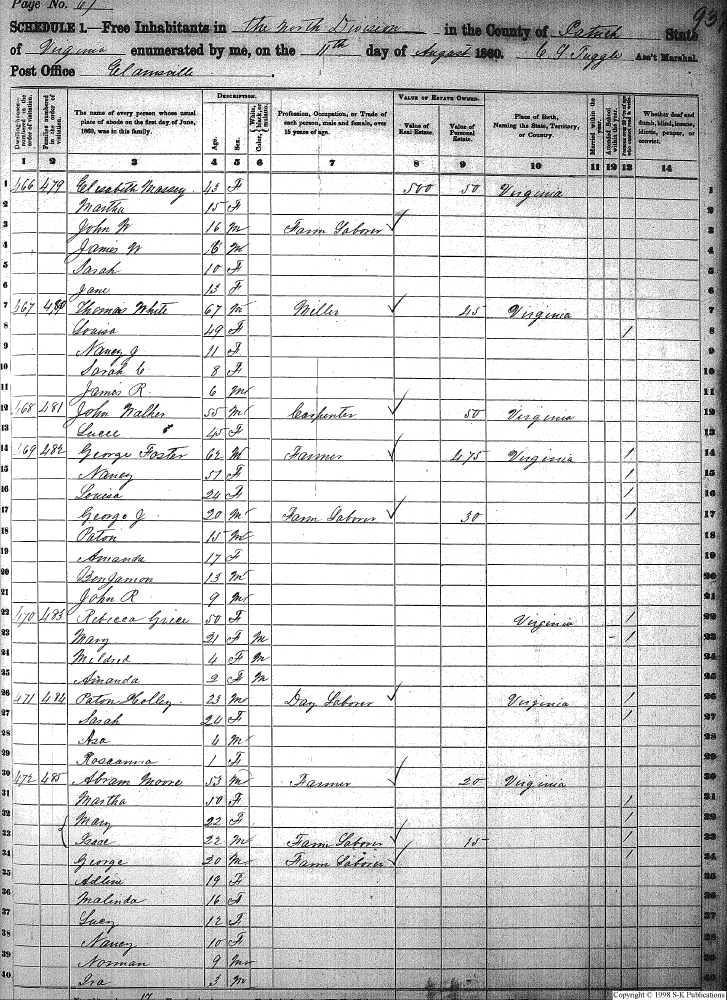 Page No. 61
93
SCHEDULE 1.—Free Inhabitants in the North Division in the County of Patrick State
of Virginia enumerated by me, on the 11th day of August 1860. C G Tuggle Ass't Marshal.
Post Office Elamsville.
Dwelling-houses—numbered in the order of visitation.
Families numbered in the order of visitation.
The name of every person whose usual place of abode on the first day of June, 1860, was in this family.
DESCRIPTION.
Age.
Sex.
Color, White, black, or mulatto.
Profession, Occupation, or Trade of each person, male and female, over 15 years of age.
VALUE OF ESTATE OWNED.
Value of Real Estate.
Value of Personal Estate.
Place of Birth, Naming the State, Territory, or Country.
Married within the year.
Attended School within the year.
Whether deaf and dumb, blind, insane, idiotic, pauper, or convict.
1 2 3 4 5 6 7 8 9 10 11 12 13 14
1 466 479 Elisabeth Massey 43 F 500 50 Virginia 1
2 Martha 15 F 2
3 John W 16 M Farm Laborer 3
4 James W M 4
5 Sarah 10 F 5
6 Jane 13 F 6
7 467 480 Thomas White 67 M Miller 45 Virginia 7
8 Louisa 49 F 1 8
9 Nancy J 11 F 9
10 Sarah C 8 F 10
11 James R. 6 M 11
12 468 481 John Walker 55 M Carpenter 50 Virginia 12
13 45 F 13
14 469 482 George Foster 62 M Farmer 475 Virginia 1 14
15 Nancy 51 F 1 15
16 Louisa 24 F 1 16
17 George J. 20 M Farm Laborer 30 1 17
18 Paton 15 M 18
19 Amanda 17 F 19
20 Bengamon 13 M 20
21 John R 9 M 21
22 470 483 Rebecca Grice 50 F Virginia 1 22
23 Mary 21 F M 1 23
24 Mildred 4 F M 24
25 Amanda 2 F M 25
26 471 484 Paton Holley 23 M Day Laborer Virginia 1 26
27 Sarah 24 F 1 27
28 Asa 4 M 28
29 Roseanna 1 F 29
30 472 485 Abram Moore 53 M Farmer 20 Virginia 30
31 Martha 50 F 1 31
32 Mary 22 F 1
33 Isaac 22 M Farm Laborer 15 1
34 George 20 M Farm Laborer 1
35 Adline 19 F 35
36 Malinda 16 F 36
37 Lucy 12 F 37
38 Nancy 10 F 38
39 Norman 9 M 39
40 Ira 3 M 40
17
Copyright © 1998 S-K Publications